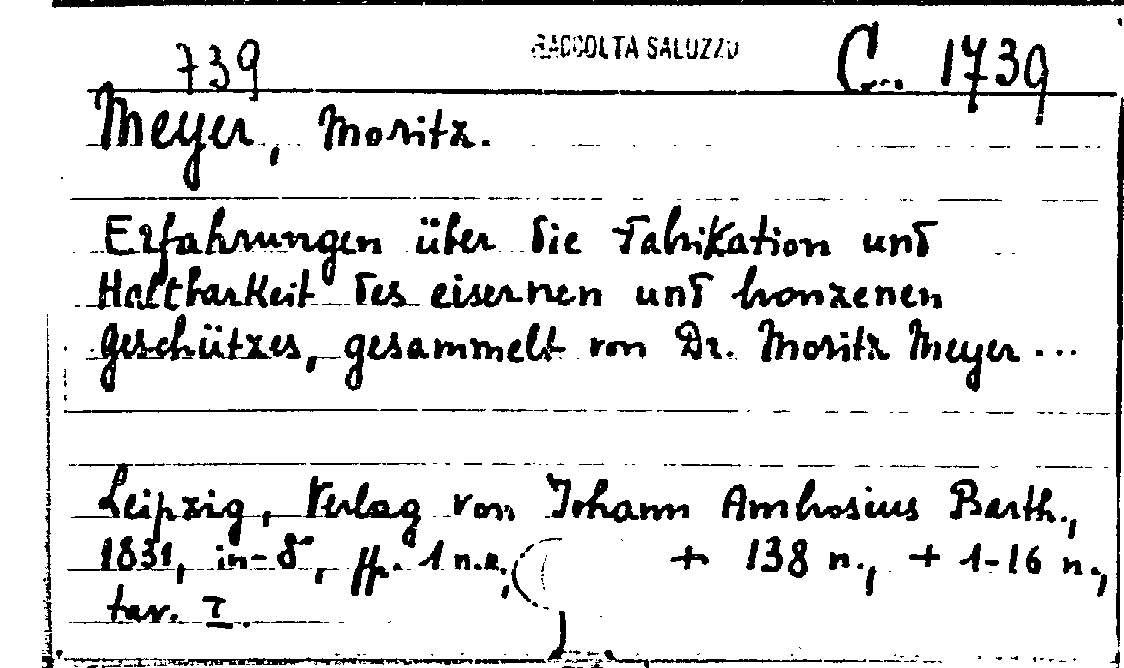 739 RACCOLTA SALUZZO C. 1739
Meyer, Moritz.
Erfahrungen über die Fabrikation und
Haltbarkeit des eisernen und bronzenen
Geschützes, gesammelt von Dr. Moritz Meyer ...
Leipzig, Verlag von Johann Ambrosius Barth.,
1831, in-8°, pp. 1 n.n., + 138 n., + 1-16 n.,
tav. I.